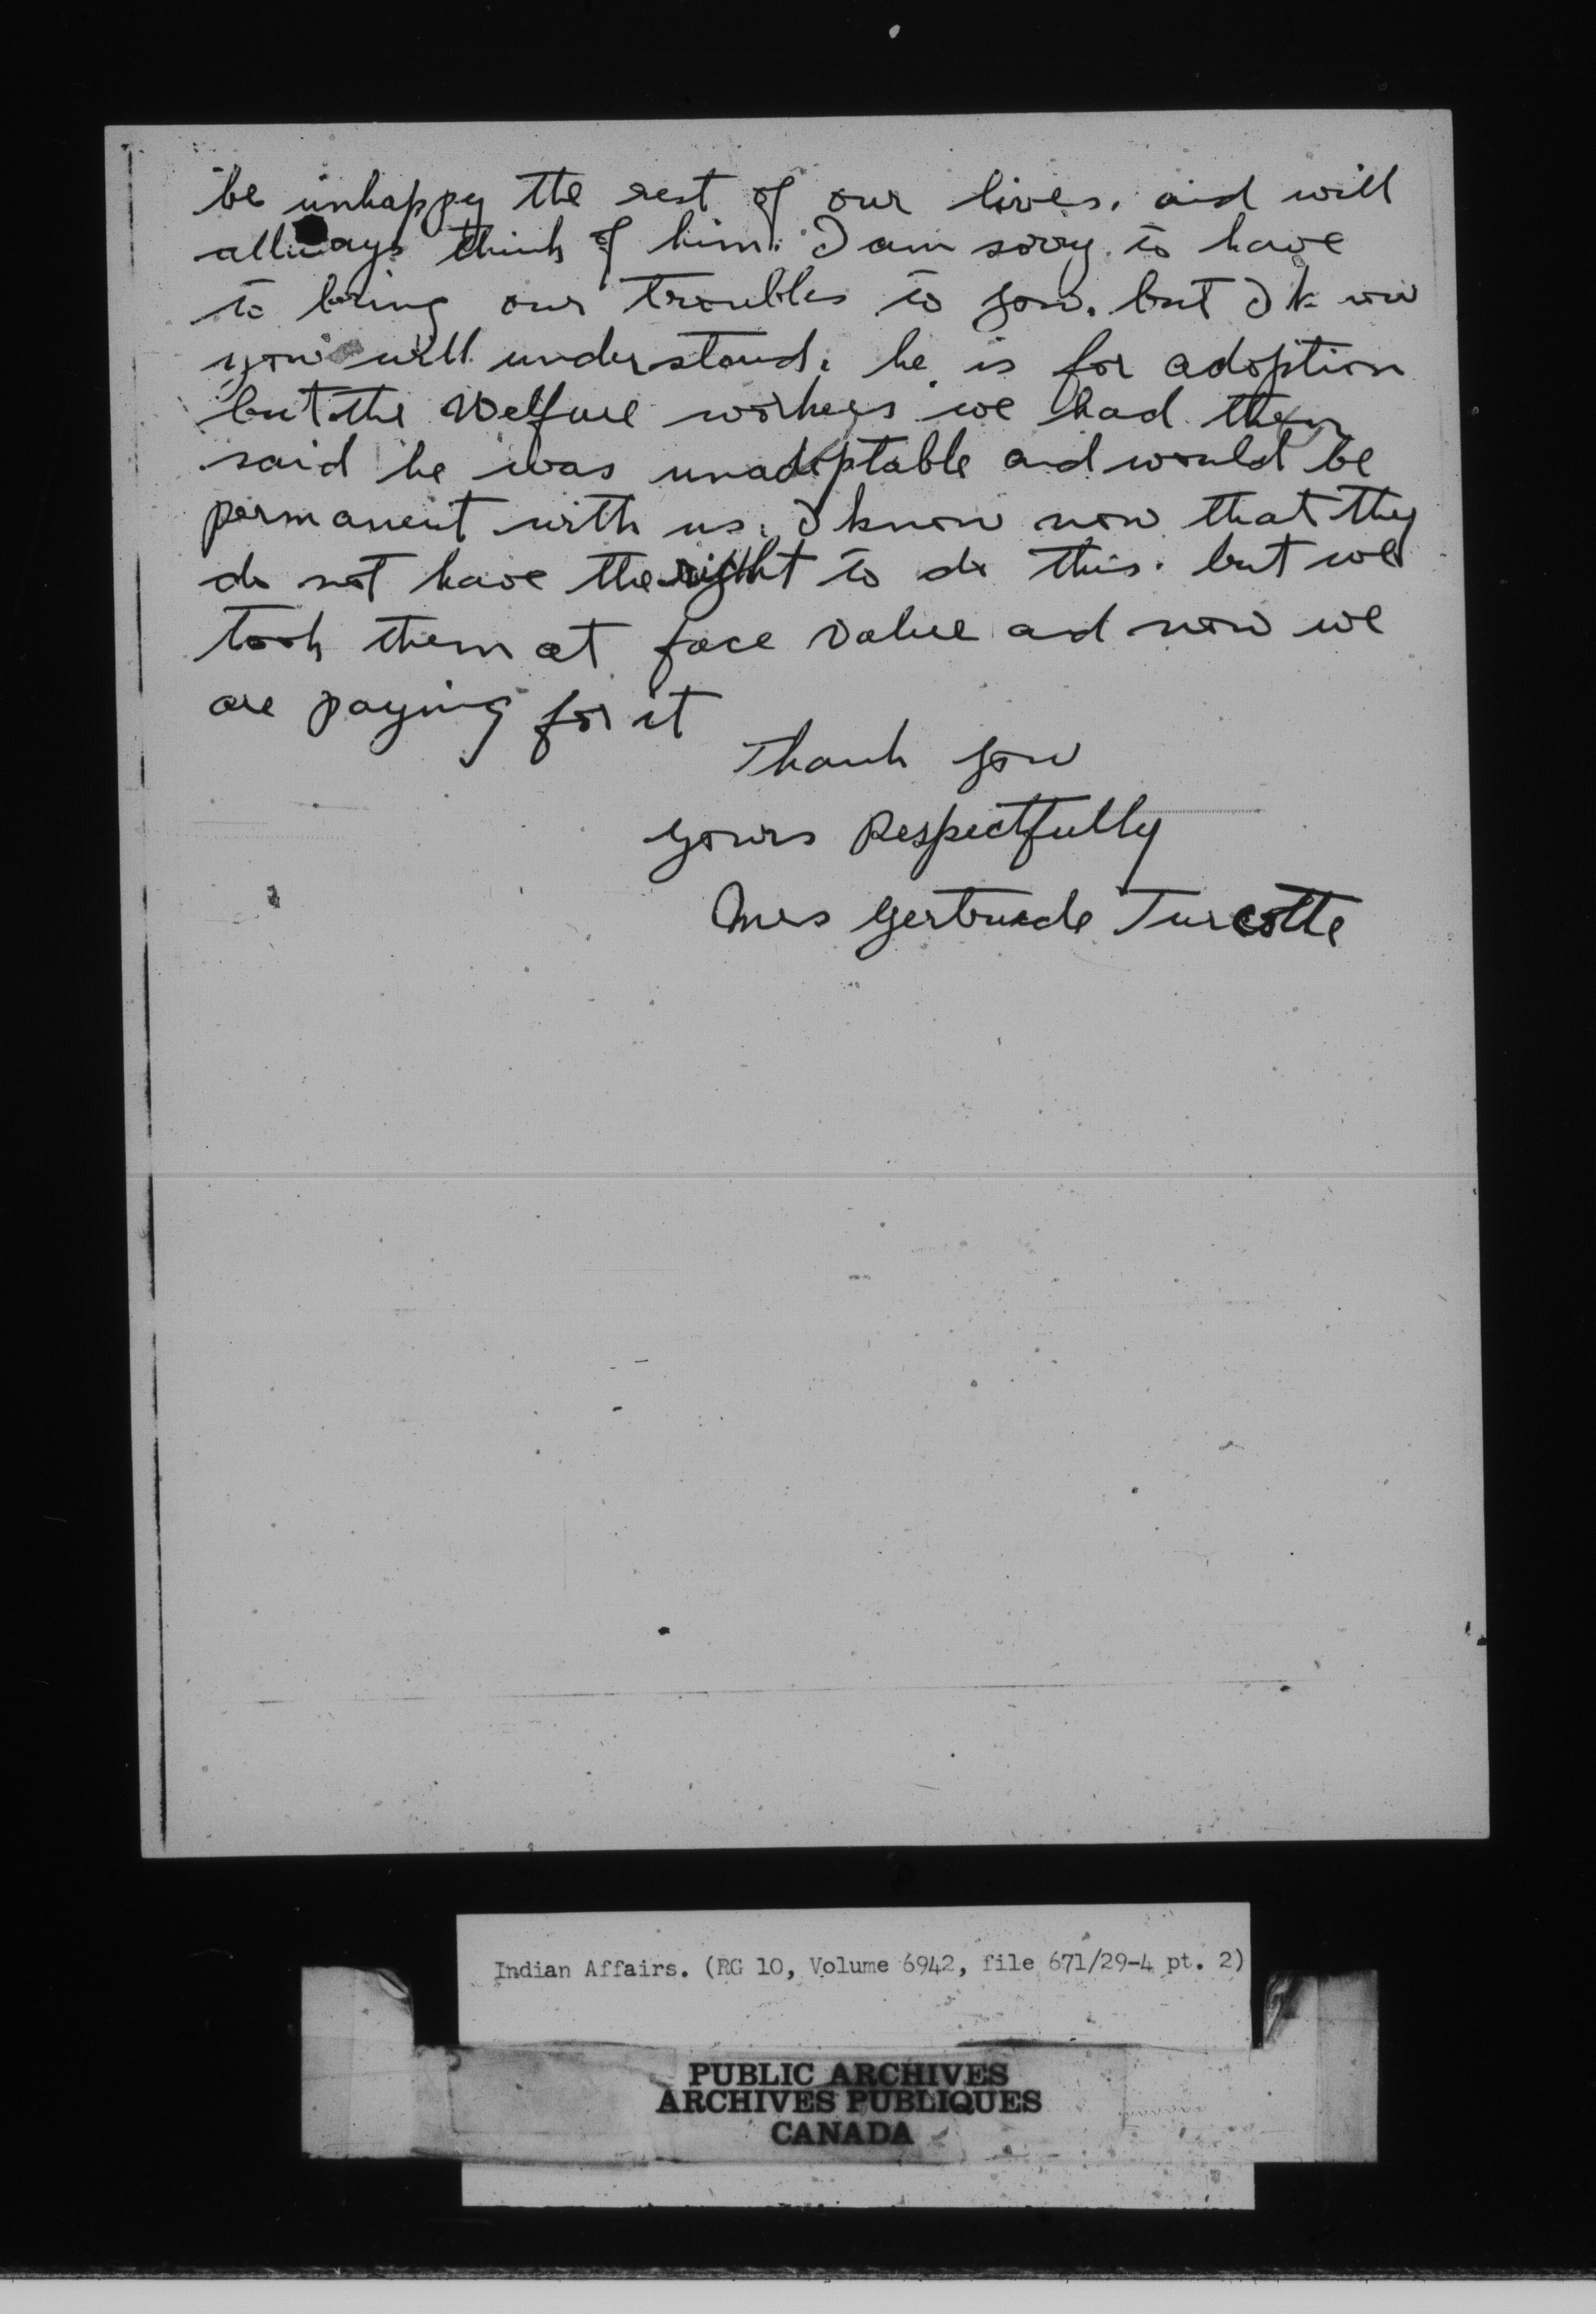 be unhappy the rest of our lives. and will
allways think of him. I am sorry to have
to bring our troubles to you. but I know
you will understand. he is for adoption
but the Welfare workers we had then
said he was unadoptable and would be
permanent with us. I know now that they
do not have the right to do this. but we
took them at face value and now we
are paying for it
Thank you
yours Respectfully
Mrs Gertrude Turcotte
Indian Affairs. (RG 10, Volume 6942, file 671/29-4 pt. 2)
PUBLIC ARCHIVES
ARCHIVES PUBLIQUES
CANADA